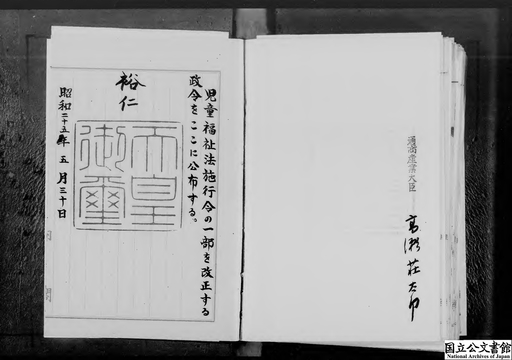 通商産業大臣
高瀬荘太郎
児童福祉法施行令の一部を改正する
政令をここに公布する。
裕仁
天皇
御璽
昭和二十五年五月三十日
国立公文書館
National Archives of Japan